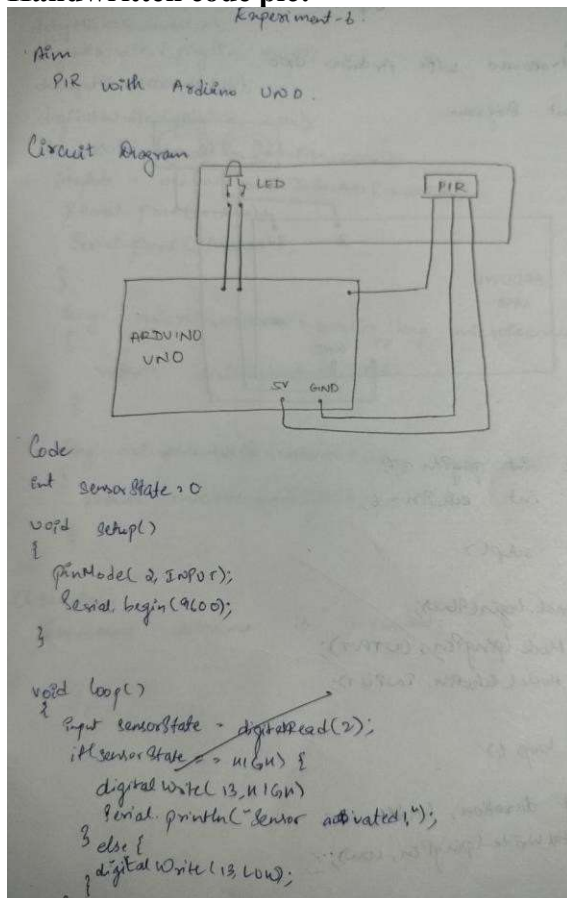 Handwritten code pic:
Experiment-6.
Aim
PIR with Arduino UNO.
Circuit Diagram
LED
PIR
ARDUINO
UNO
5V GND
Code
int SensorState = 0
void setup()
{
pinMode( 2, INPUT);
Serial. begin(9600);
}
void loop()
{
input sensorState = digitalRead(2);
if(sensorState = = HIGH) {
digital Write( 13, HIGH)
Serial. println("Sensor activated!");
} else {
digital Write (13, LOW);
}